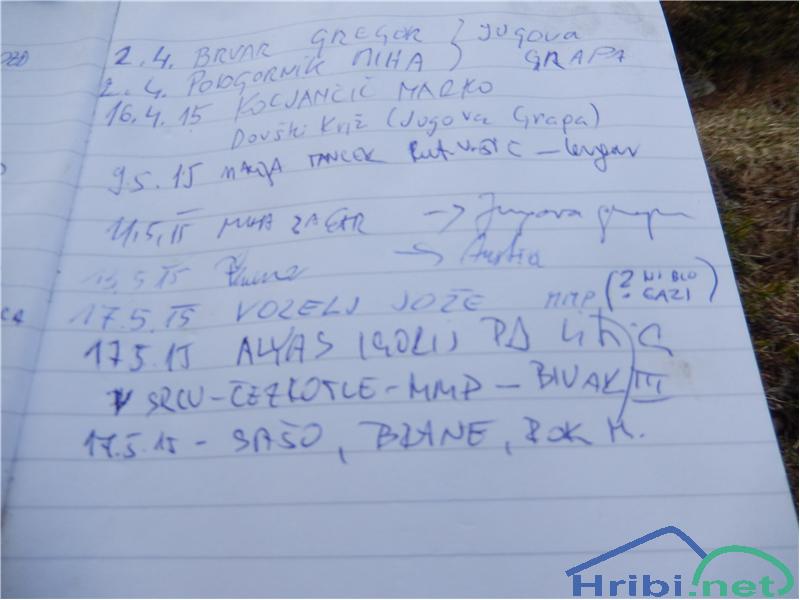 2.4. BRVAR GREGOR } JUGOVA
2.4. PODGORNIK MIHA } GRAPA
16.4.15 KOCJANČIČ MARKO
Dovški Križ (Jugova Grapa)
9.5.15 MANJA TANCEK
11.5.15 MIHA ZAGAR → Jugova grapa
5.15 → Austria
17.5.15 VOZELJ JOŽE MMP (? NI BLO GAZI)
17.5.15 ALYAS (GOLI) PD
V SRCU-ČEZ KOTLE-MMP-BIVAK III
17.5.15 - SAŠO, BRANE, ROK M.
Hribi.net